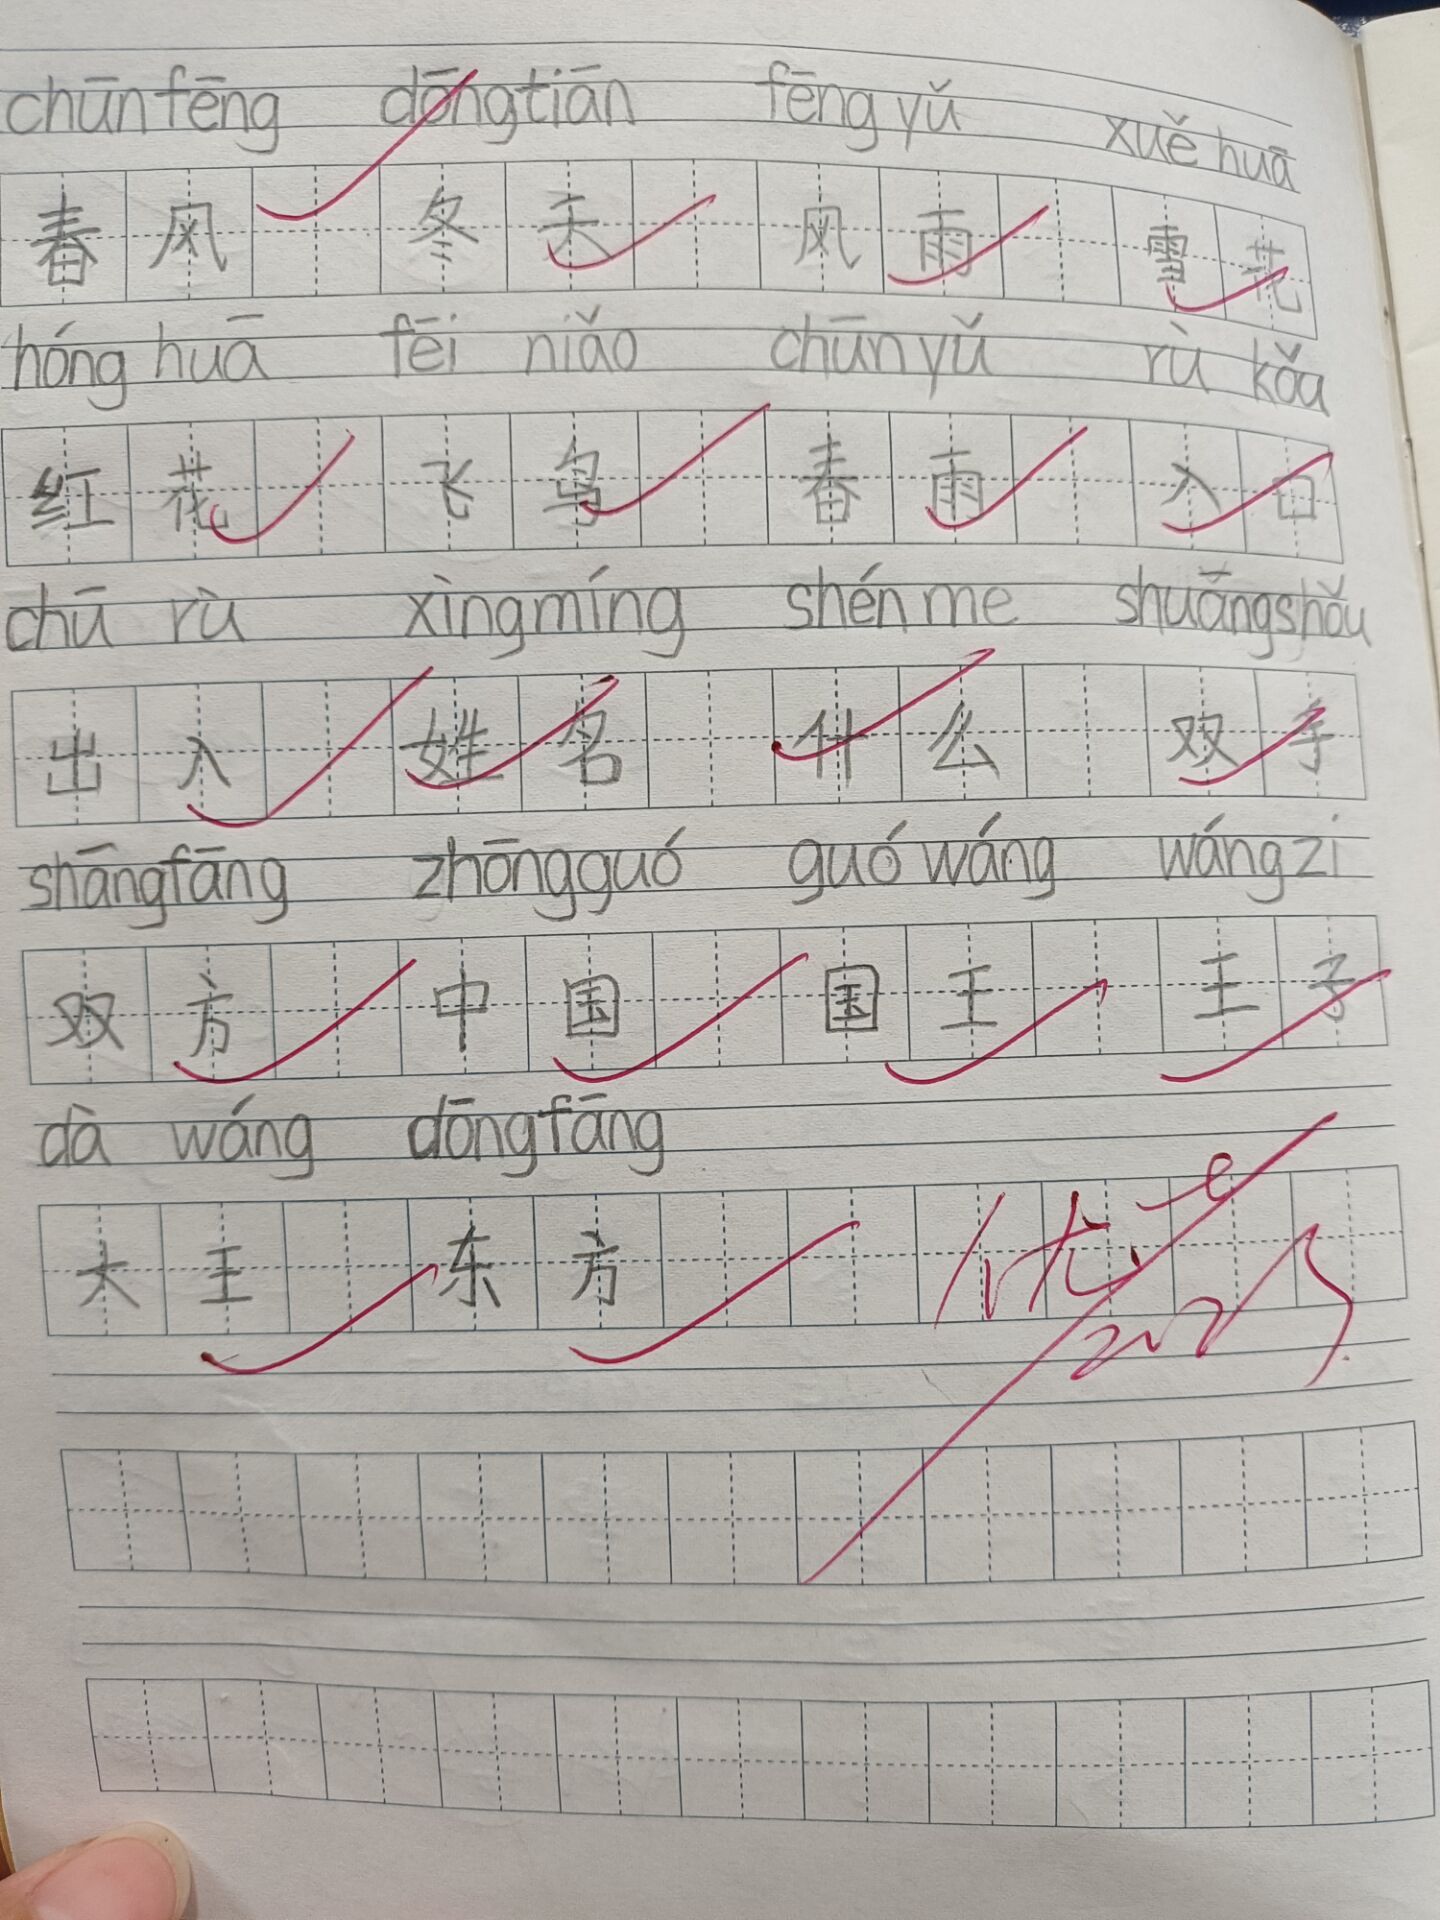 chūn fēng dōng tiān fēng yǔ xuě huā
春风 冬天 风雨 雪花
hóng huā fēi niǎo chūn yǔ rù kǒu
红花 飞鸟 春雨 入口
chū rù xìng míng shén me shuāng shǒu
出入 姓名 什么 双手
shāng fāng zhōng guó guó wáng wáng zi
双方 中国 国王 王子
dà wáng dōng fāng
大王 东方
优